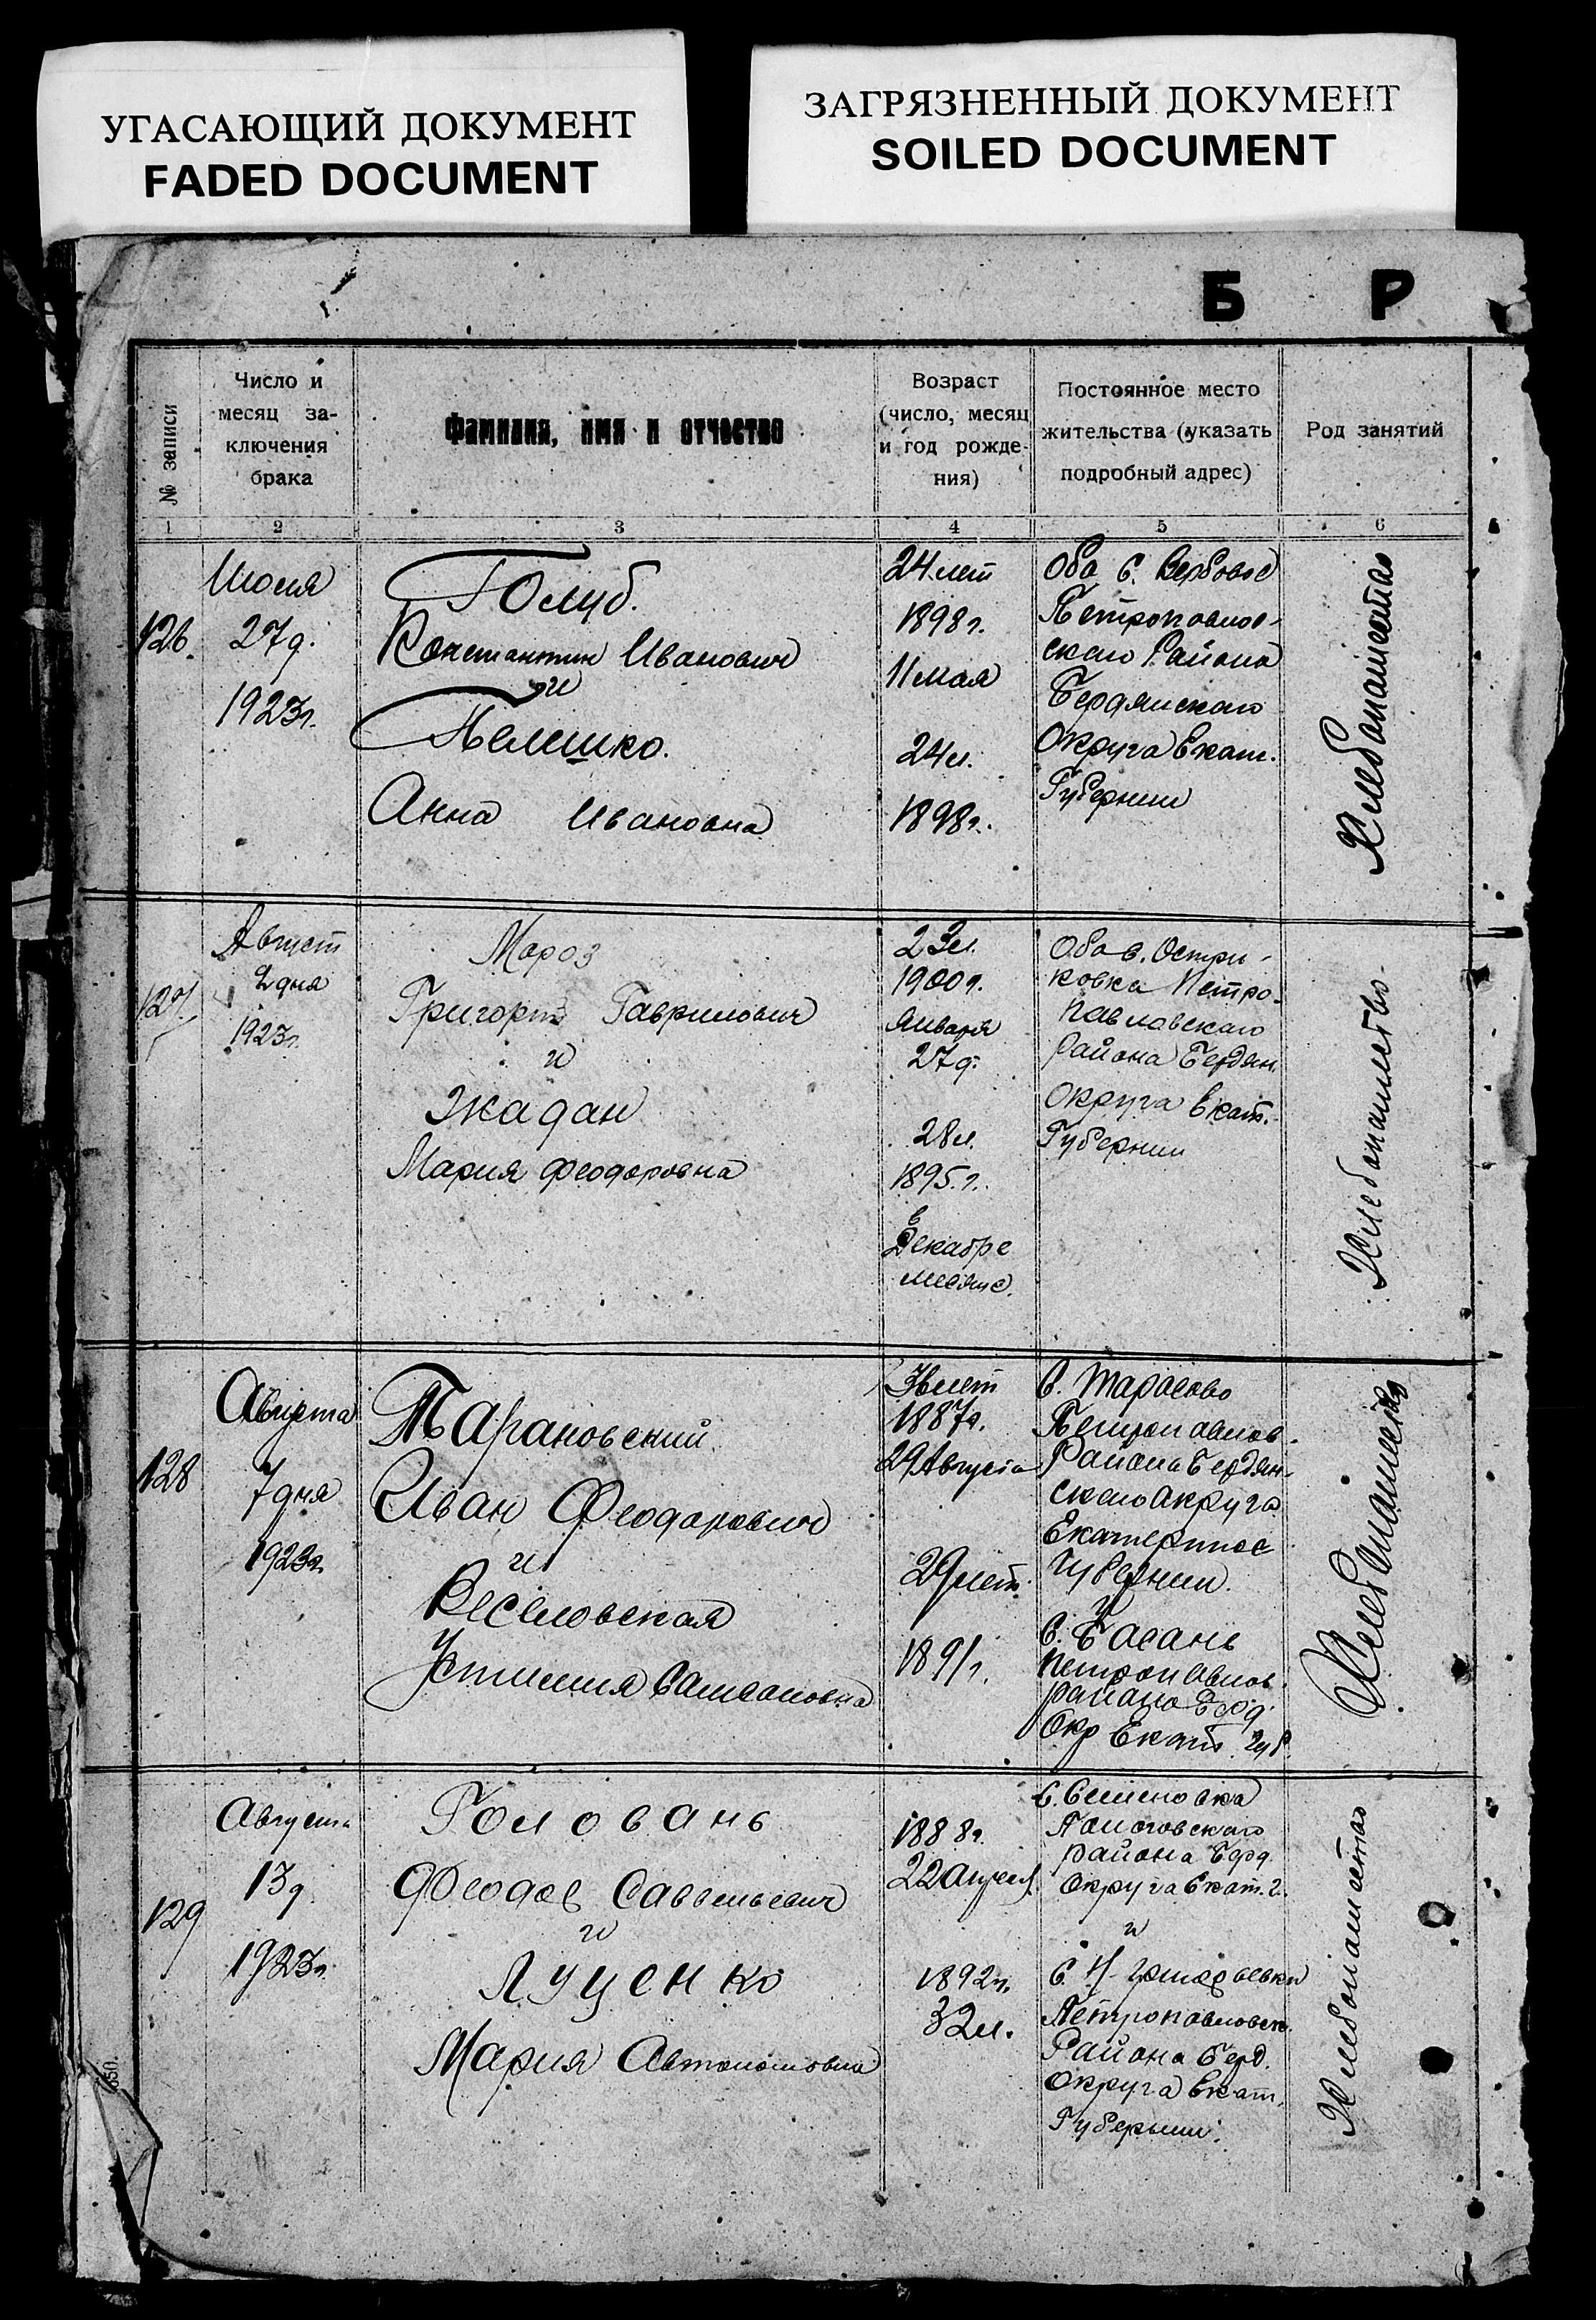 УГАСАЮЩИЙ ДОКУМЕНТ
FADED DOCUMENT
ЗАГРЯЗНЕННЫЙ ДОКУМЕНТ
SOILED DOCUMENT
Б Р
№ записи
Число и
месяц за-
ключения
брака
Фамилия, имя и отчество
Возраст
(число, месяц
и год рожде-
ния)
Постоянное место
жительства (указать
подробный адрес)
Род занятий
1 2 3 4 5 6
126.
Июля
27 д.
1923 г.
Голуб.
Константин Иванович
и
Келешко.
Анна Ивановна
24 лет
1898 г.
11 мая
24 л.
1898 г.
Оба с. Вербовое
Петропавлов-
скаго Района
Бердянскаго
Округа Екат.
Губернии
Хлебопашество
127
Август
2 дня
1923 г.
Мороз
Григорий Гаврилович
и
Жадан
Мария Феодоровна
23 л.
1900 г.
Января
27 д.
28 л.
1895 г.
в
Декабре
месяце.
Оба с. Остри-
ковка Петро-
павловскаго
района Бердян.
Округа Екат.
Губернии
Хлебопашество.
128
Августа
7 дня
1923 г.
Тарановский
Иван Феодорович
и
Веселовская
Устиния Самсоновна
36 лет
1887 г.
29 Августа
29 лет.
1891 г.
С. Тарасово
Петропавлов.
Района Бердян-
скаго Округа
Екатеринос
Губернии.
и
С. Басань
Петропавлов.
района Берд.
Окр Екат. губ
Хлебопашество
129
Августа
13 д
1923 г.
Головань
Феодос Савельевич
и
Луценко
Мария Автономовна
1888 г.
22 Апреля
1892 г.
32 л.
С. Семеновка
Пологовскаго
района Берд.
Округа Екат. г.
и
С. Н-Григорьевки
Петропавловск.
Района Берд.
Округа Екат,
Губернии.
Хлебопашество
650.